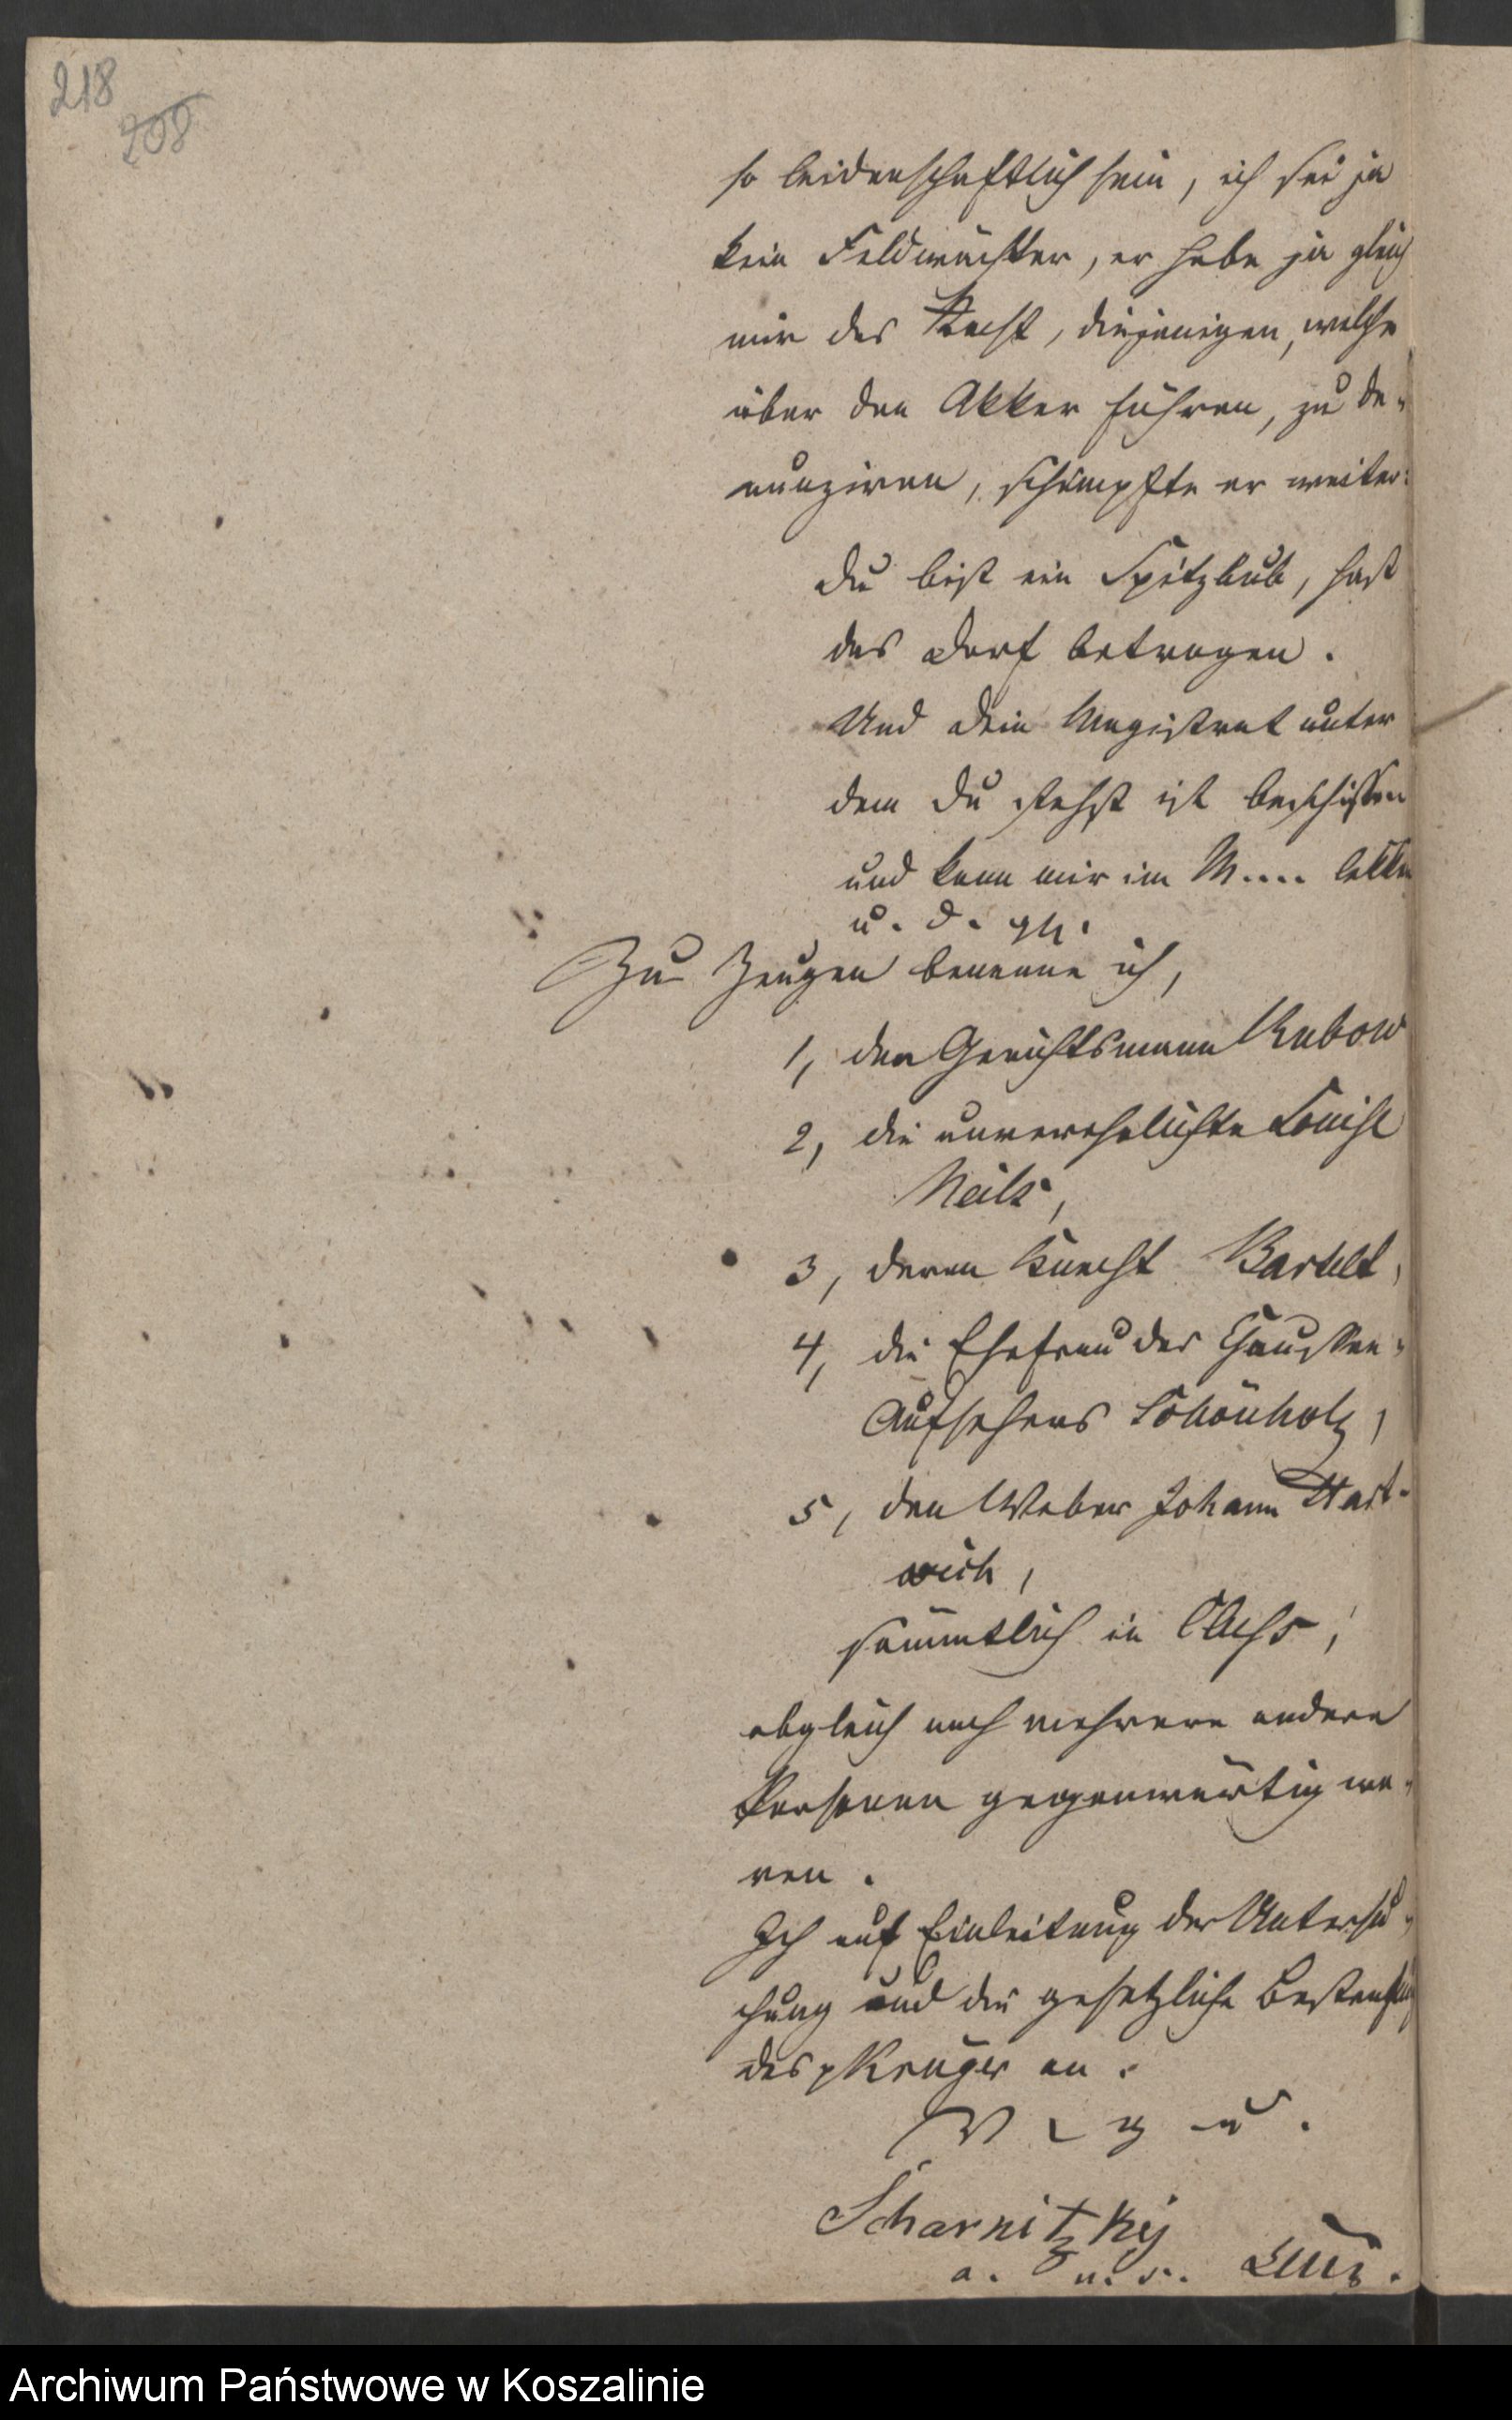 218
208
so leidenschaftlich sein, ich sei ja
kein Feldwächter, er habe ja gleich
mir das Recht, diejenigen, welche
über den Akker führen, zu de-
nunziren, schimpfte er weiter:
Du bist ein Spitzbub, hast
das Dorf betrogen.
Und dein Magistrat unter
dem du stehst ist beschissen
und kann mir im M.... lekken
u. d. gl.
Zu Zeugen benenne ich,
1, den Gerichtsmann Rubow
2, die unverehelichte Louise
Neils,
3, deren Knecht Bartelt,
4, die Ehefrau des Chaussee-
Aufsehers Schönholz,
5, den Weber Johann Hart-
wich,
sämmtlich in
obgleich noch mehrere andere
Personen gegenwärtig wa-
ren.
Ich auf Einleitung der Untersu-
chung und die gesetzliche Bestrafung
des p Krüger an.
V g u.
Scharnitzky
a. u. s.
Archiwum Państwowe w Koszalinie